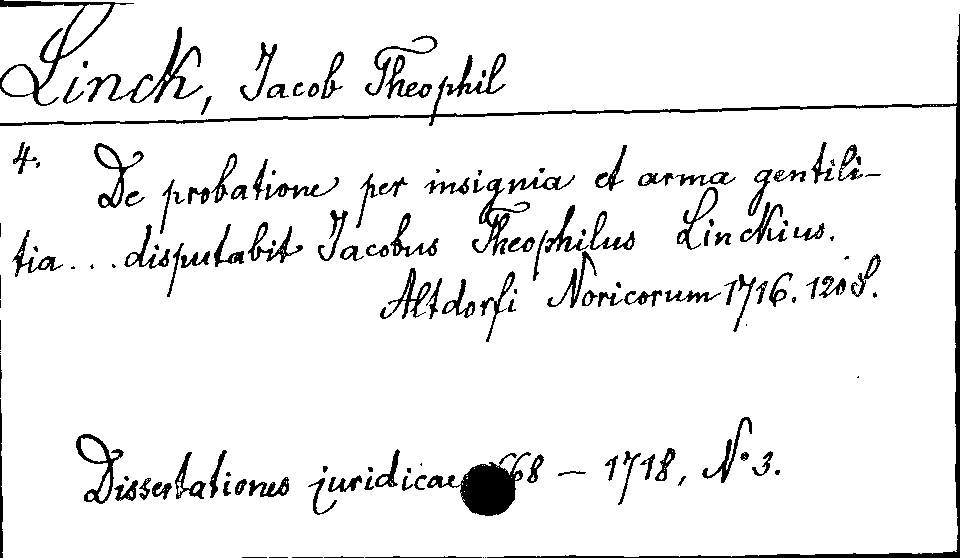 Linck, Jacob Theophil
4. De probatione per insignia et arma gentili-
tia... disputabit Jacobus Theophilus Linckius.
Altdorfi Noricorum 1716. 120 S.
Dissertationes juridicae 1668 – 1718, N° 3.